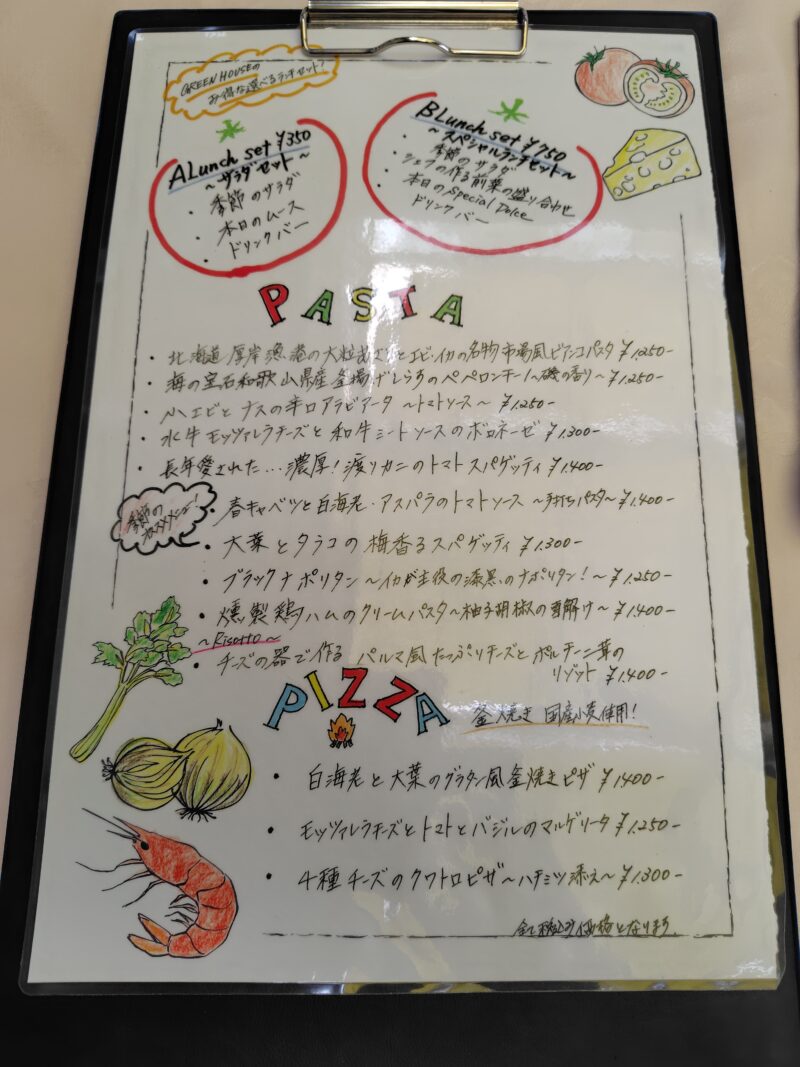 GREEN HOUSEの
お得な選べるランチセット!
A Lunch set ¥350
~サラダセット~
・季節のサラダ
・本日のムース
・ドリンクバー
B Lunch set ¥750
~スペシャルランチセット~
・季節のサラダ
・シェフの作る前菜の盛り合わせ
・本日のSpecial Dolce
・ドリンクバー
PASTA
・北海道厚岸漁港の大粒あさりとエビ・イカの名物市場風ビアンコパスタ ¥1,250-
・海の宝石和歌山県産釜揚げしらすのペペロンチーノ~磯の香り~ ¥1,250-
・小エビとナスの辛口アラビアータ ~トマトソース~ ¥1,250-
・水牛モッツァレラチーズと和牛ミートソースのボロネーゼ ¥1,300-
・長年愛された…濃厚!渡りカニのトマトスパゲッティ ¥1,400-
季節の
オススメメニュー!
・春キャベツと白海老・アスパラのトマトソース ~手打ちパスタ~ ¥1,400-
・大葉とタラコの梅香るスパゲッティ ¥1,300-
・ブラックナポリタン ~イカが主役の漆黒のナポリタン!~ ¥1,250-
・燻製鶏ハムのクリームパスタ~柚子胡椒の雪解け~ ¥1,400-
~Risotto~
・チーズの器で作る パルマ風たっぷりチーズとポルチーニ茸の
リゾット ¥1,400-
PIZZA
釜焼き 国産小麦使用!
・白海老と大葉のグラタン風釜焼きピザ ¥1400-
・モッツァレラチーズとトマトとバジルのマルゲリータ ¥1,250-
・4種チーズのクワトロピザ~ハチミツ添え~ ¥1,300-
全て税込み価格となります。